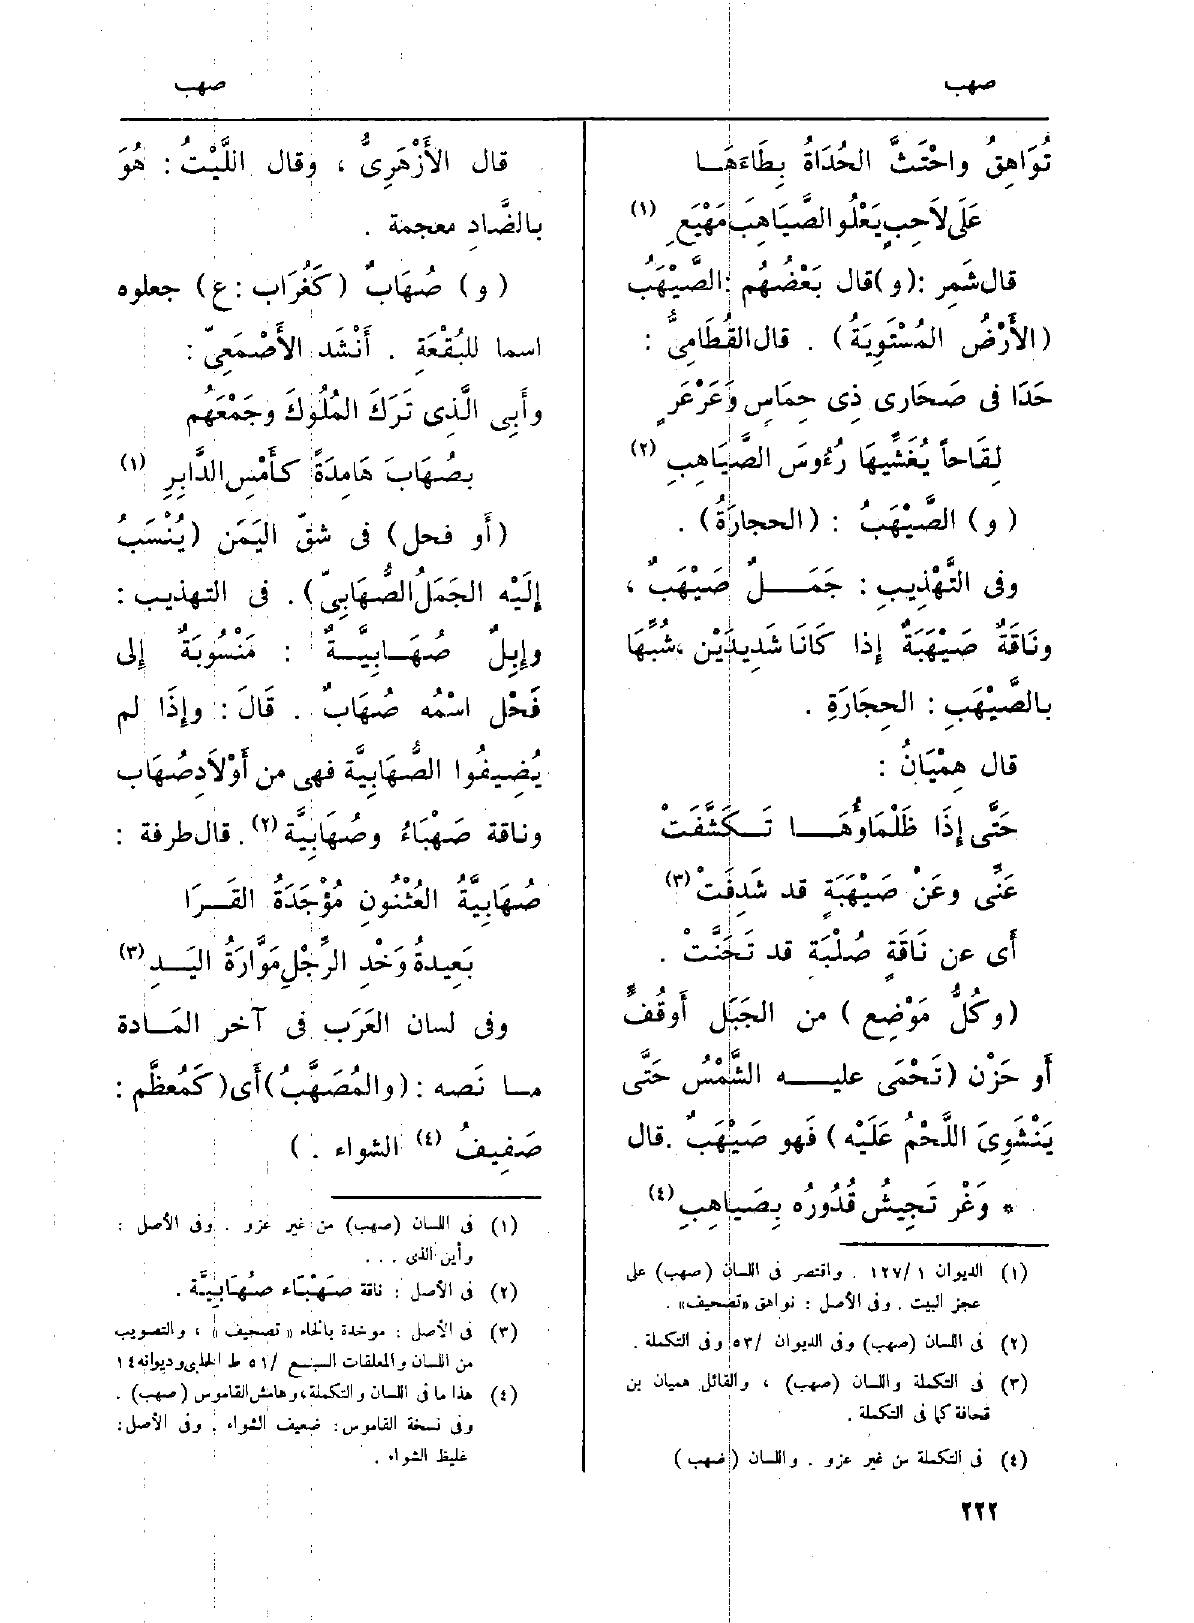 صهب
صهب
تُوَاهِقُ واحْتَثَّ الحُدَاةُ بِطَاءَهَا
عَلَى لاَحِبٍ يَعْلُو الصَّيَاهِبَ مَهْيَعِ (١)
قال شَمِر : (و) قال بَعْضُهُم : الصَّيْهَبُ
(الأَرْضُ المُسْتَوِيَةُ) . قال القُطَامِىُّ :
حَدَا فى صَحَارى ذِى حِمَاسٍ وَعَرْعَرٍ
لِقَاحاً يُغَشِّيهَا رُءُوسَ الصَّيَاهِبِ (٢)
(و) الصَّيْهَبُ : (الحجارَةُ) .
وفى التَّهْذِيبِ : جَمَلٌ صَيْهَبٌ ،
ونَاقَةٌ صَيْهَبَةٌ إذا كَانَا شَدِيدَيْن ، شُبِّهَا
بالصَّيْهَبِ : الحِجَارَةِ .
قال هِمْيَانُ :
حَتَّى إِذَا ظَلْمَاؤُهَا تَكَشَّفَتْ
عَنِّى وعَنْ صَيْهَبَةٍ قد شَدِفَتْ (٣)
أى عن نَاقَةٍ صُلْبَة قد تَحَنَّتْ .
(وكُلُّ مَوْضِع) من الجَبَل أَوقُفٌّ
أَو حَزْن (تَحْمَى عليه الشَّمْسُ حَتَّى
يَنْشَوِىَ اللَّحْمُ عَلَيْه) فَهو صَيْهَبٌ . قال
* وَغْر تَجِيشُ قُدُورُه بِصَيَاهِبِ (٤)
(١) الديوان ١ /١٢٧ . واقتصر فى اللسان (صهب) على
عجز البيت . وفى الأصل : نواهق «تصحيف» .
(٢) فى اللسان (صهب) وفى الديوان /٥٣ وفى التكملة .
(٣) فى التكملة واللسان (صهب) ، والقائل هميان بن
قحافة كما فى التكملة .
(٤) فى التكملة من غير عزو . واللسان (صهب)
قال الأَزْهَرِىُّ ، وقال اللَّيْثُ : هُوَ
بالضَّادِ معجمة .
(و) صُهَابٌ (كَغُرَاب : ع) جعلوه
اسما للبُقْعَةِ . أَنْشَد الأَصْمَعِىّ :
وأَبِى الَّذِى تَرَكَ المُلُوكَ وجَمْعَهُم
بصُهَابَ هَامِدَةً كأَمْسِ الدَّابِرِ (١)
(أَو فحل) فى شقّ اليَمَن (يُنْسَبُ
إلَيْه الجَمَلُ الصُّهَابِىّ) . فى التهذيب :
وإِبِلٌ صُهَابِيَّةٌ : مَنْسُوبَةٌ إلى
فَحْل اسْمُه صُهَابٌ . قَالَ : وإِذَا لم
يُضِيفُوا الصُّهَابِيَّة فهى من أَوْلاَد صُهَاب
وناقة صَهْبَاءُ وصُهَابِيَّة (٢) . قال طرفة :
صُهَابِيَّةُ العُثْنُونِ مُؤْجَدَةُ القَرَا
بَعِيدةُ وَخْدِ الرِّجْلِ مَوَّارَةُ اليَدِ (٣)
وفى لسان العَرَب فى آخر المَادة
ما نَصه : (والمُصَهَّبُ) أَى (كَمُعظَّم :
صَفِيفُ (٤) الشواء . )
(١) فى اللسان (صهب) من غير عزو . وفى الأصل :
وأين الذى . . .
(٢) فى الأصل : ناقة صَهْبَاء صُهَابِيَّة .
(٣) فى الأصل : موخدة بالخاء «تصحيف» ، والتصويب
من اللسان والمعلقات السبع /٥١ ط الحلبى وديوانه ١٤
(٤) هذا ما فى اللسان والتكملة ، وهامش القاموس (صهب) .
وفى نسخة القاموس : ضعيف الشواء . وفى الأصل :
غليظ الشواء .
٢٢٢